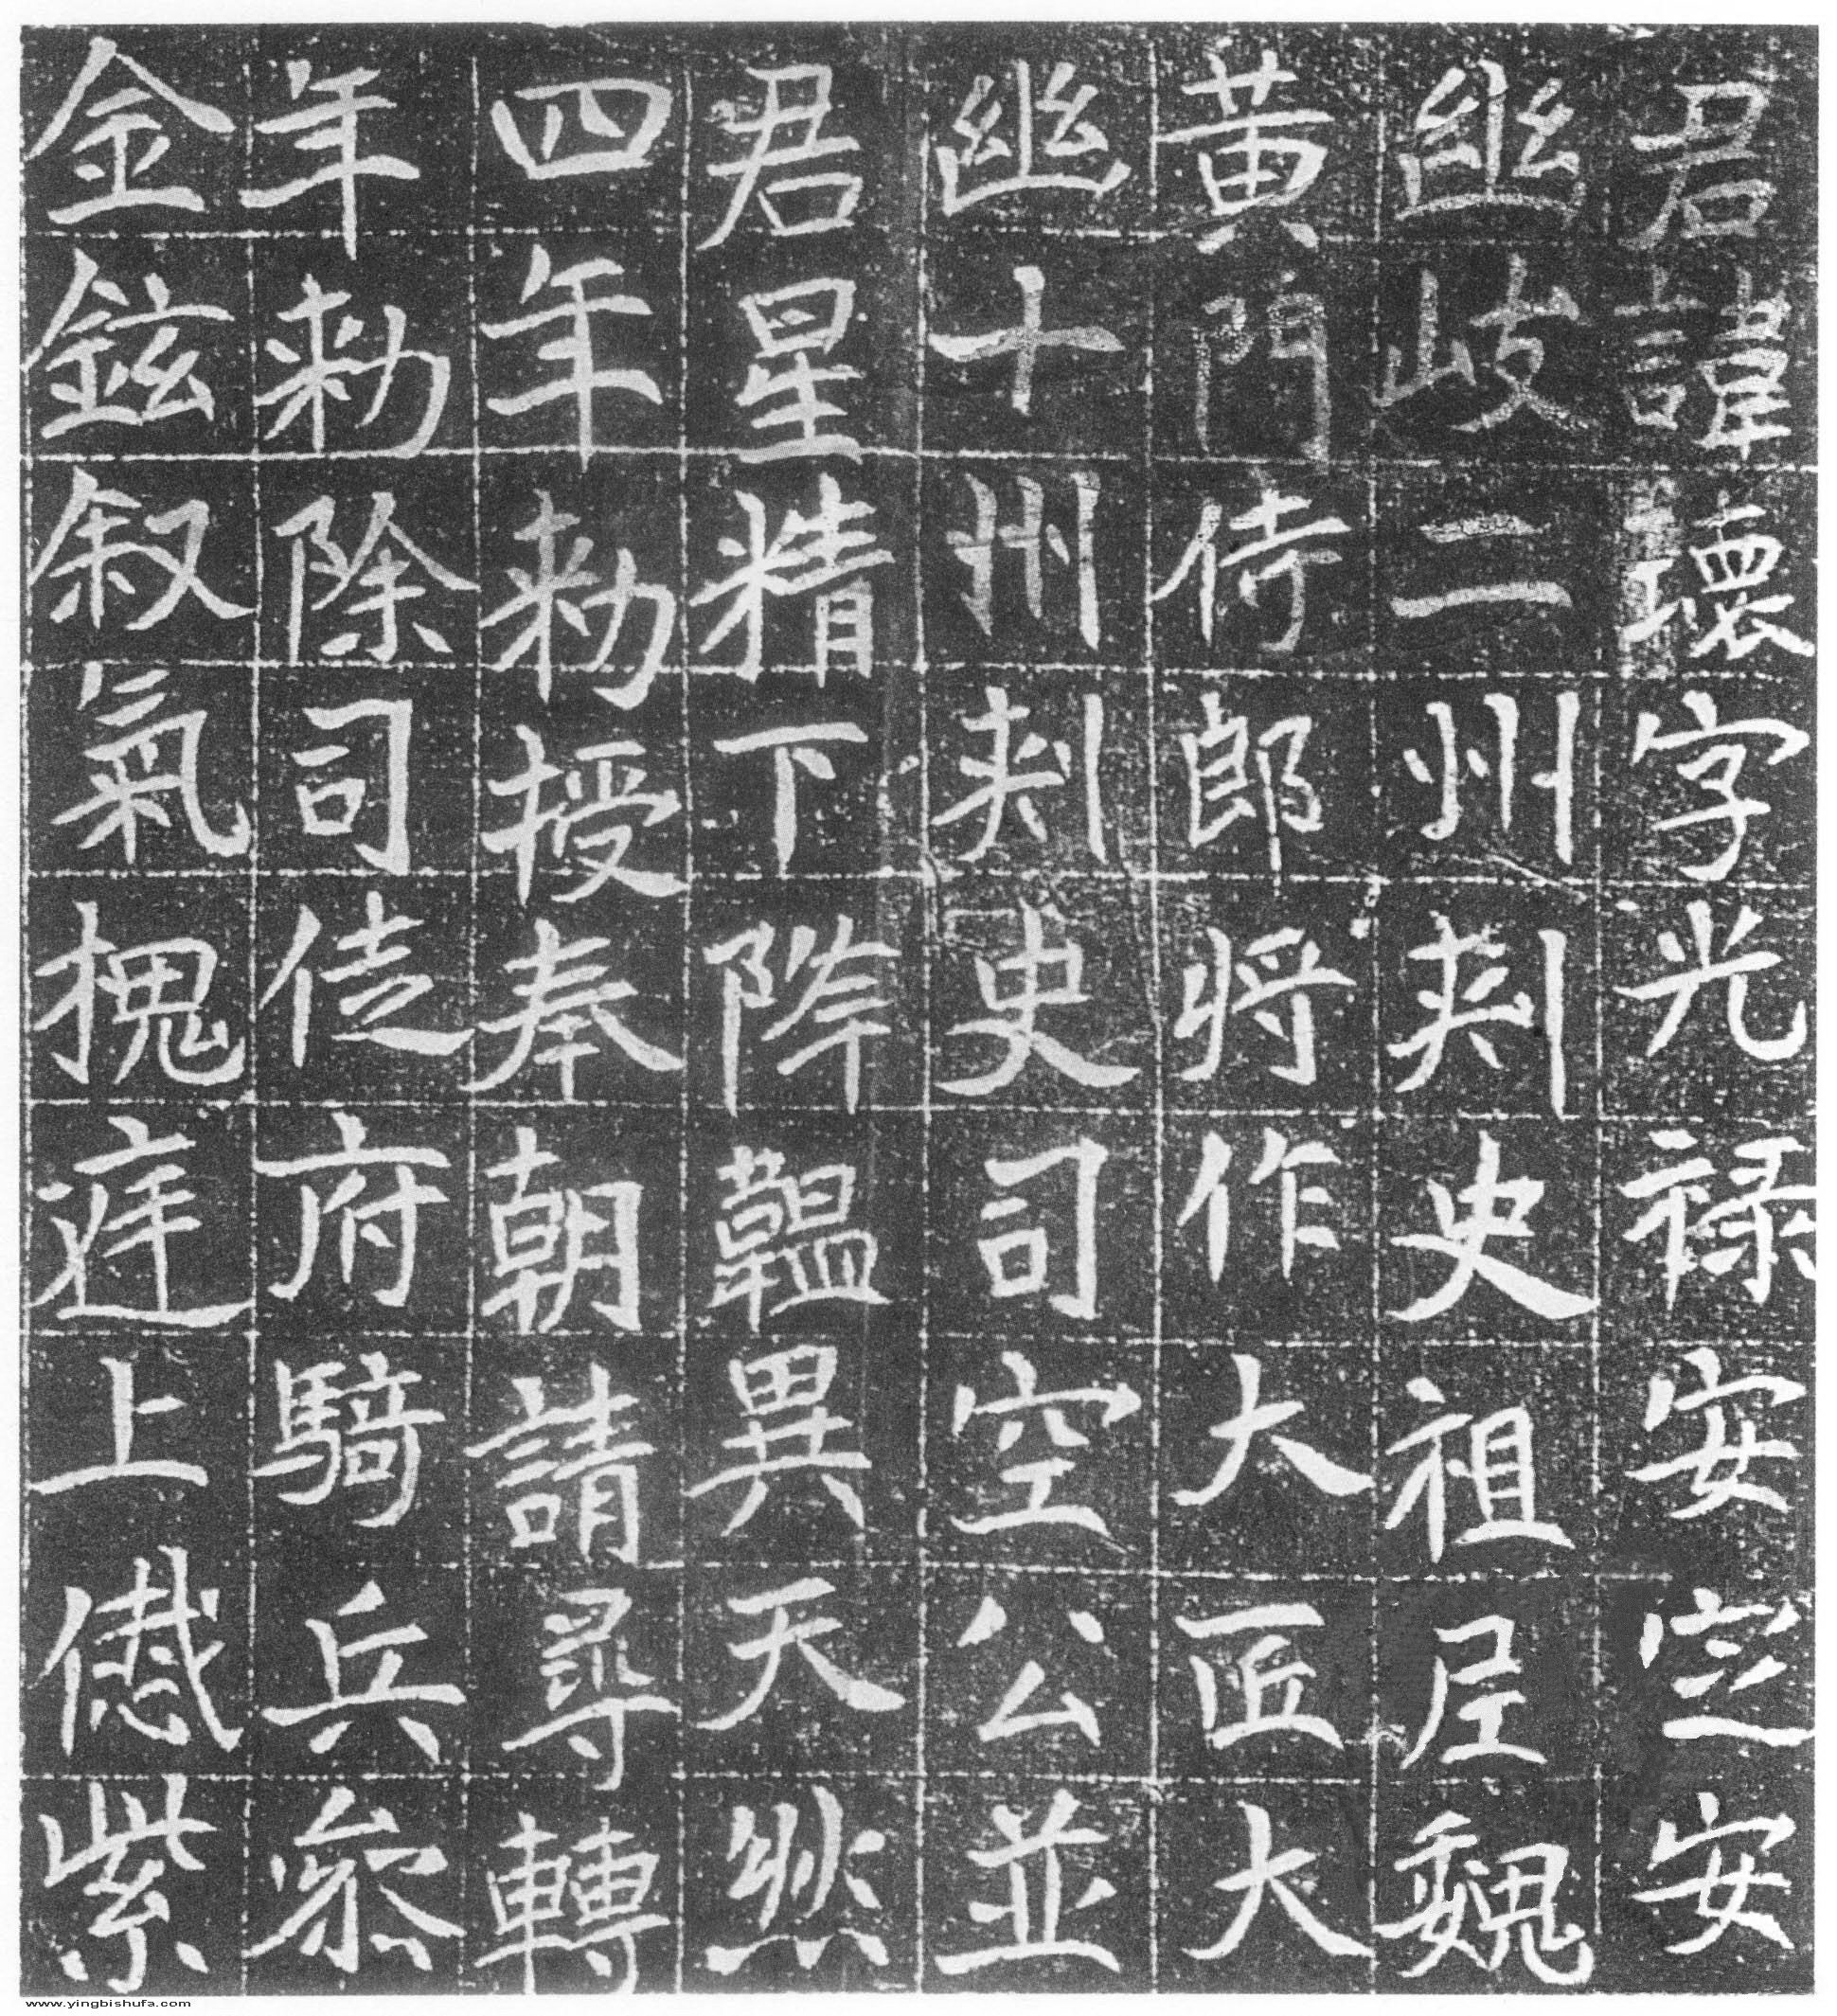 君諱瓌字光祿安定安
幽岐二州刺史祖魏
黃門侍郎將作大匠大
幽十州刺史司空公並
君星精下降韞異天然
四年勑授奉朝請尋轉
年勑除司徒府騎兵參
金鉉叙氣槐庭上紫
www.yingbishufa.com